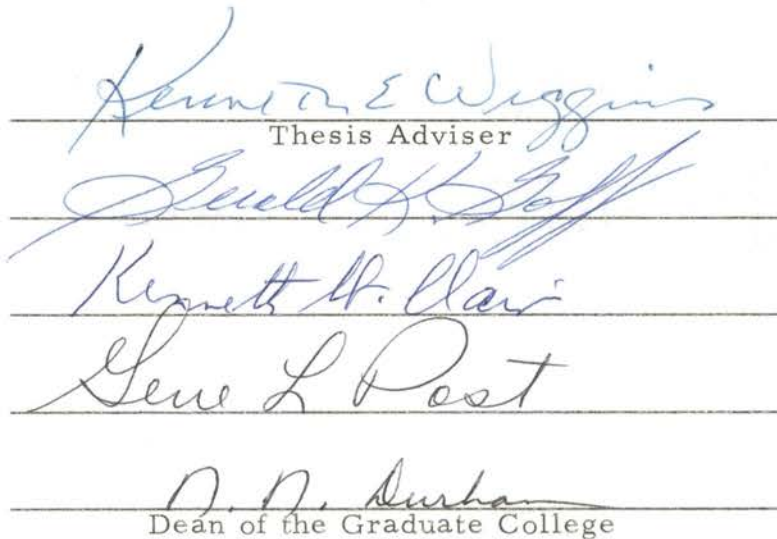 Kenneth E Wiggins
Thesis Adviser
Gerald K. Goff
Kenneth
Gene L Post
N. N. Durham
Dean of the Graduate College